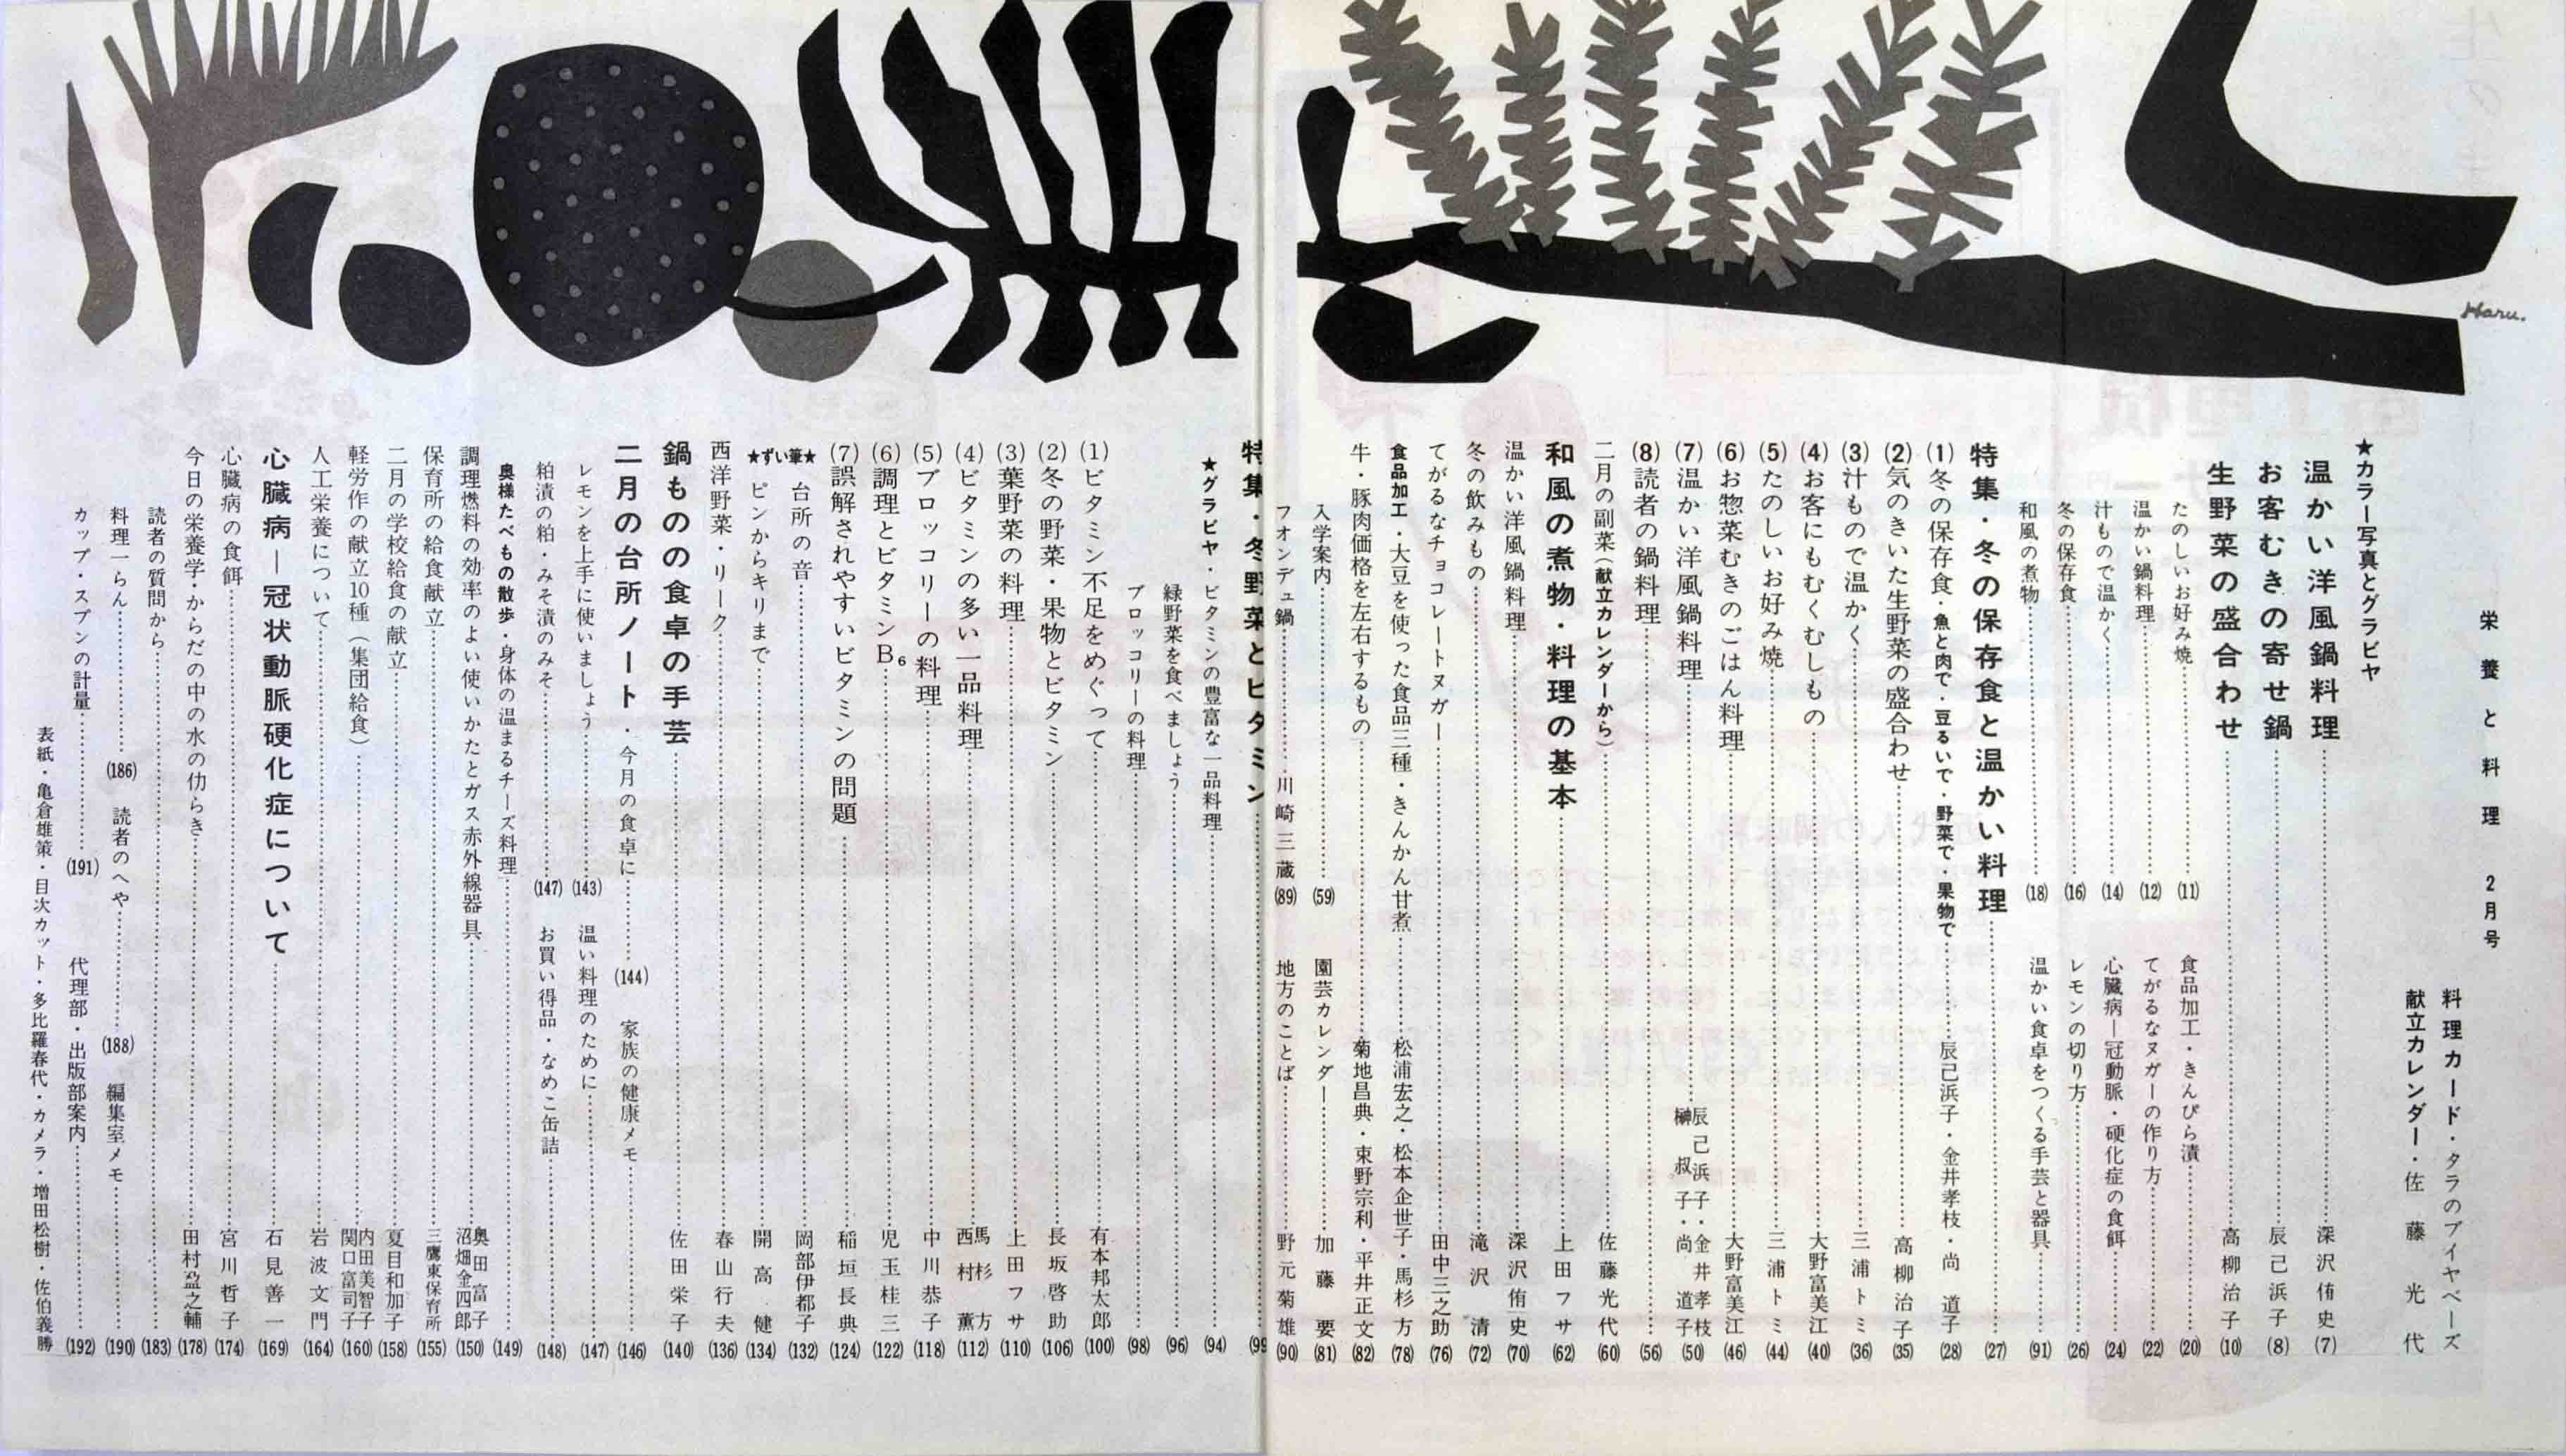 Haru.
栄養と料理 2月号
料理カード・タラのブイヤベーズ
献立カレンダー・佐藤光代
★カラー写真とグラビヤ
温かい洋風鍋料理……深沢侑史(7)
お客むきの寄せ鍋……辰己浜子(8)
生野菜の盛合わせ……高柳治子(10)
たのしいお好み焼……(11) 食品加工・きんぴら漬……(20)
温かい鍋料理……(12) てがるなヌガーの作り方……(22)
汁もので温かく……(14) 心臓病―冠動脈・硬化症の食餌……(24)
冬の保存食……(16) レモンの切り方……(26)
和風の煮物……(18) 温かい食卓をつくる手芸と器具……(91)
特集・冬の保存食と温かい料理……(27)
(1)冬の保存食・魚と肉で・豆るいで・野菜で・果物で……辰己浜子・金井孝枝・尚道子(28)
(2)気のきいた生野菜の盛合わせ……高柳治子(35)
(3)汁もので温かく……三浦トミ(36)
(4)お客にもむくむしもの……大野富美江(40)
(5)たのしいお好み焼……三浦トミ(44)
(6)お惣菜むきのごはん料理……大野富美江(46)
(7)温かい洋風鍋料理……辰己浜子・金井孝枝 榊叔子・尚道子(50)
(8)読者の鍋料理……(56)
二月の副菜(献立カレンダーから)……佐藤光代(60)
和風の煮物・料理の基本……上田フサ(62)
温かい洋風鍋料理……深沢侑史(70)
冬の飲みもの……滝沢清(72)
てがるなチョコレートヌガー……田中三之助(76)
食品加工・大豆を使った食品三種・きんかん甘煮……松浦宏之・松本企世子・馬杉方(78)
牛・豚肉価格を左右するもの……菊地昌典・東野宗利・平井正文(82)
入学案内……(59) 園芸カレンダー……加藤要(81)
フォンデュ鍋……川崎三蔵(89) 地方のことば……野元菊雄(90)
特集・冬野菜とビタミン……(99
★グラビヤ・ビタミンの豊富な一品料理……(94)
緑野菜を食べましょう……(96)
ブロッコリーの料理……(98)
(1)ビタミン不足をめぐって……有本邦太郎(100)
(2)冬の野菜・果物とビタミン……長坂啓助(106)
(3)葉野菜の料理……上田フサ(110)
(4)ビタミンの多い一品料理……馬杉方 西村薫(112)
(5)ブロッコリーの料理……中川恭子(118)
(6)調理とビタミンB₆……児玉桂三(122)
(7)誤解されやすいビタミンの問題……稲垣長典(124)
★ずい筆★ 台所の音……岡部伊都子(132)
ピンからキリまで……開高健(134)
西洋野菜・リーク……春山行夫(136)
鍋ものの食卓の手芸……佐田栄子(140)
二月の台所ノート・今月の食卓に……(144) 家族の健康メモ……(146)
レモンを上手に使いましょう……(143) 温い料理のために……(147)
粕漬の粕・みそ漬のみそ……(147) お買い得品・なめこ缶詰……(148)
奥様たべもの散歩・身体の温まるチーズ料理……(149)
調理燃料の効率のよい使いかたとガス赤外線器具……奥田富子 沼畑金四郎(150)
保育所の給食献立……三鷹東保育所(155)
二月の学校給食の献立……夏目和加子(158)
軽労作の献立10種(集団給食)……内田美智子 関口富司子(160)
人工栄養について……岩波文門(164)
心臓病―冠状動脈硬化症について……石見善一(169)
心臓病の食餌……宮川哲子(174)
今日の栄養学・からだの中の水の仂らき……田村盈之輔(178)
読者の質問から……(183)
料理一らん……(186) 読者のへや……(188) 編集室メモ……(190)
カップ・スプンの計量……(191) 代理部・出版部案内……(192)
表紙・亀倉雄策・目次カット・多比羅春代・カメラ・増田松樹・佐伯義勝